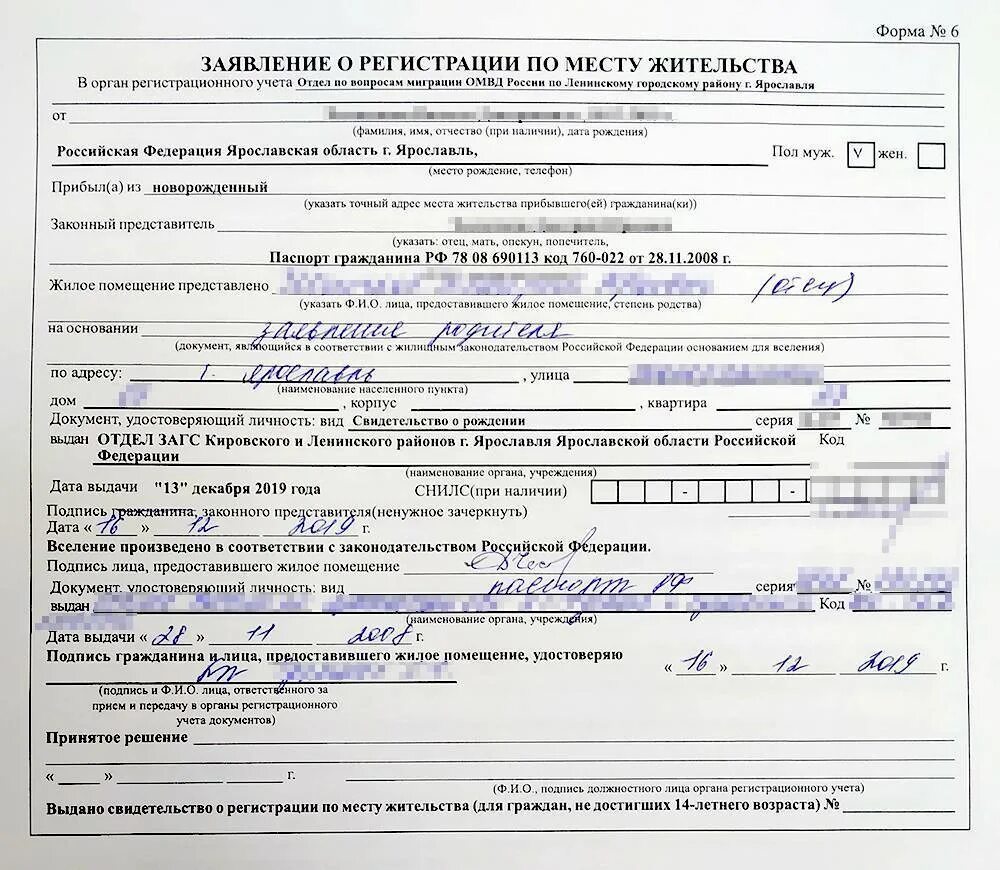 Форма № 6
ЗАЯВЛЕНИЕ О РЕГИСТРАЦИИ ПО МЕСТУ ЖИТЕЛЬСТВА
В орган регистрационного учета Отдел по вопросам миграции ОМВД России по Ленинскому городскому району г. Ярославля
от
(фамилия, имя, отчество (при наличии), дата рождения)
Российская Федерация Ярославская область г. Ярославль, Пол муж. V жен.
(место рождение, телефон)
Прибыл(а) из новорожденный
(указать точный адрес места жительства прибывшего(ей) гражданина(ки))
Законный представитель
(указать: отец, мать, опекун, попечитель,
Паспорт гражданина РФ 78 08 690113 код 760-022 от 28.11.2008 г.
Жилое помещение представлено (отец)
(указать Ф.И.О. лица, предоставившего жилое помещение, степень родства)
на основании заявление родителя
(документ, являющийся в соответствии с жилищным законодательством Российской Федерации основанием для вселения)
по адресу: г. Ярославль , улица
(наименование населенного пункта)
дом , корпус , квартира
Документ, удостоверяющий личность: вид Свидетельство о рождении серия №
выдан ОТДЕЛ ЗАГС Кировского и Ленинского районов г. Ярославля Ярославской области Российской Код
Федерации
(наименование органа, учреждения)
Дата выдачи "13" декабря 2019 года СНИЛС(при наличии) - -
Подпись гражданина, законного представителя(ненужное зачеркнуть)
Дата « 16 » 12 2019 г.
Вселение произведено в соответствии с законодательством Российской Федерации.
Подпись лица, предоставившего жилое помещение
Документ, удостоверяющий личность: вид паспорт РФ серия №
выдан Код
(наименование органа, учреждения)
Дата выдачи « 28 » 11 2008 г.
Подпись гражданина и лица, предоставившего жилое помещение, удостоверяю « 16 » 12 2019 г.
(подпись и Ф.И.О. лица, ответственного за
прием и передачу в органы регистрационного
учета документов)
Принятое решение
« » г.
(Ф.И.О., подпись должностного лица органа регистрационного учета)
Выдано свидетельство о регистрации по месту жительства (для граждан, не достигших 14-летнего возраста) №